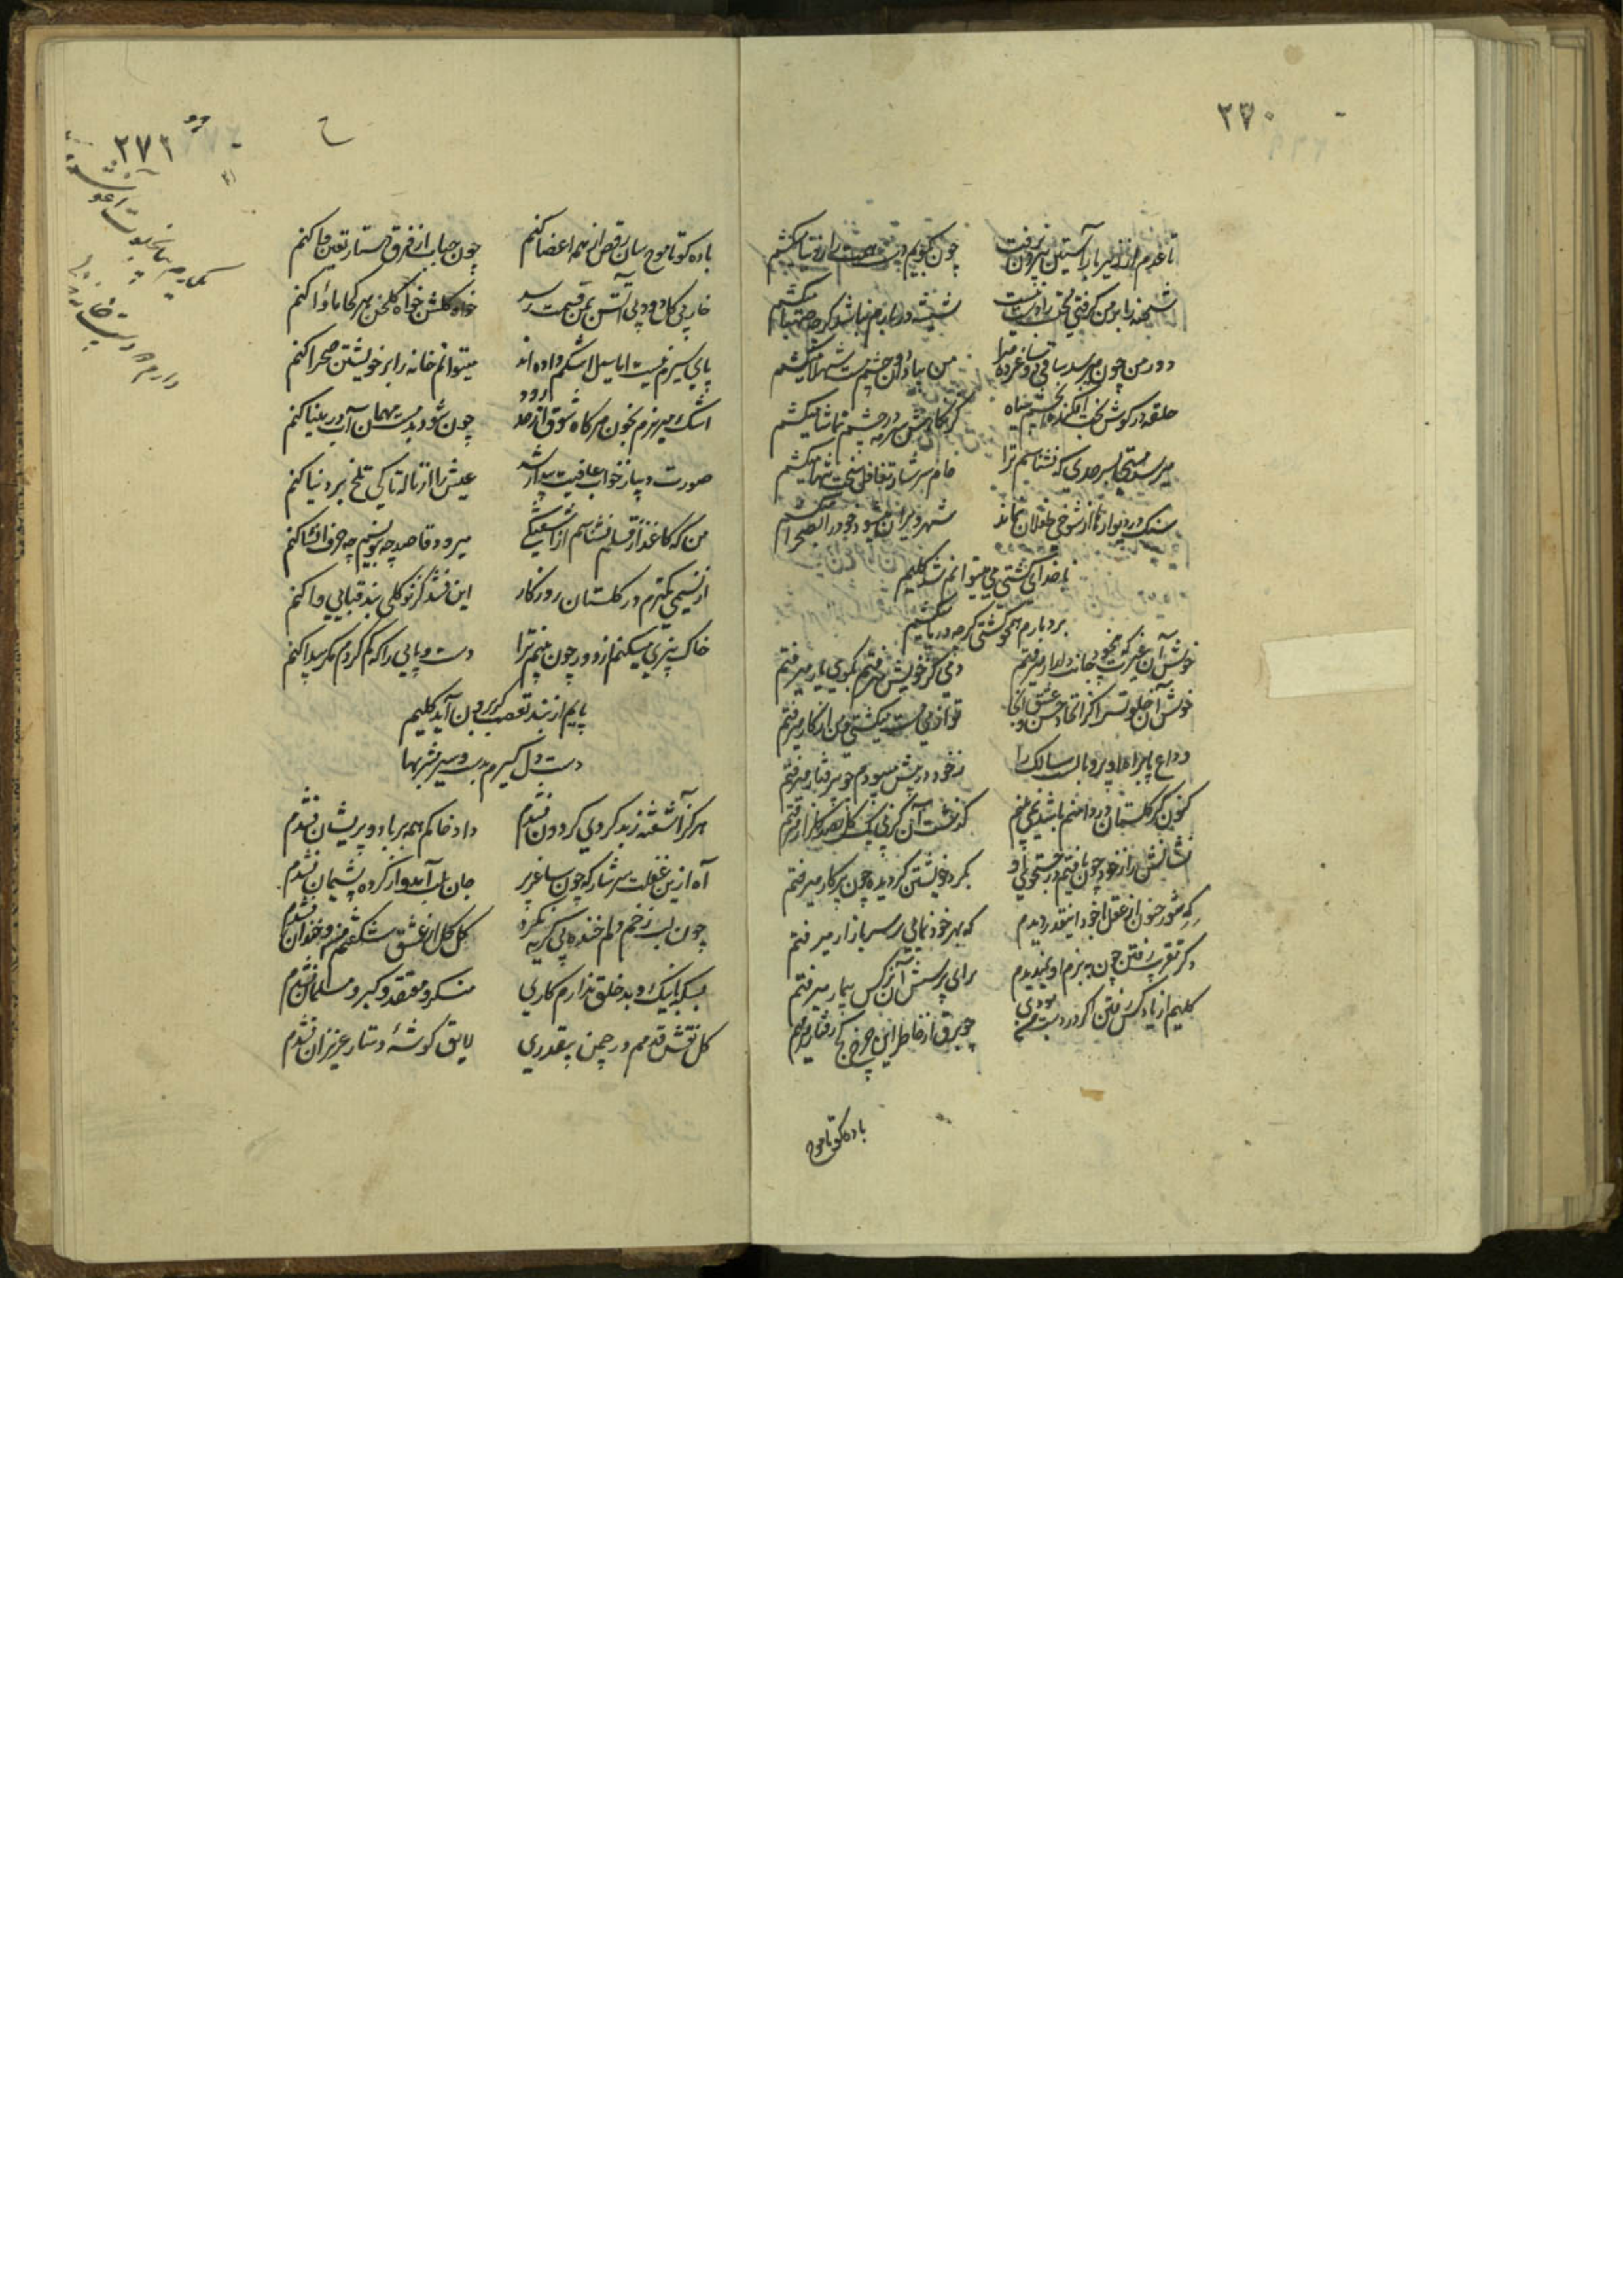 ۲۷۰
تا غمم از زیر بار آستین بیرون نرفت چون بگویم دست را از دنیا میکشم
شحنه را بر من گرفتی نیست شیشه در بارم نباشد گرچه صهبا میکشم
دور من چون میرسد ساقی مرا من بیاد آن چشم شهلا میکشم
حلقه در گوش بخت افکنده گر نگارش سرمه در چشم تماشا میکشم
میرسد مستی بسر حدی که نشناسم ترا جام سرشار تغافل سخت تنها میکشم
سنگ در دیوارها از شوخی طفلان نماند شهر ویران میشود خود را بصحرا میکشم
ناخدای کشتی می میتوانم شد کلیم
بردبارم همچو کشتی گرچه دریا میکشم
خوش آن غیرت که بیخود جانب دلدار میرفتم دمی کز خویش میرفتم بکوی یار میرفتم
خوش آن خلوتسرا کز اتحاد حسن و عشق آنجا تو از می مست میگشتی و من از کار میرفتم
وداع پا براه او پر و بالست سالک را ز خود در پیش میبودم چو بیرفتار میرفتم
کنون گر گلستان در دامنم باشد نمی‌بینم گذشت آن کز پی یک گل بصد گلزار میرفتم
نشانش را ز خود چون یافتم در جستجوی او بگرد خویشتن گردیده چون پرگار میرفتم
که شور جنون از عقل با خود اینقدر دیدم که بهر خودنمایی بر سر بازار میرفتم
دگر تقریب رفتن چون به بزم او نمیدیدم برای پرسش آن نرگس بیمار میرفتم
کلیم از یاد کس رفتن اگر در دست من بودی چو برق از خاطر این چرخ کج رفتار میرفتم
باده کو تا موج
۲۷۱
باده کو تا موج سان رقص از همه اعضا کنم چون حباب از فرق دستار تعین وا کنم
خار بی گل دود بی آتش بمن قسمت رسد خواه گلشن خواه گلخن هر کجا مأوا کنم
پای سیرم نیست اما سیل اشکم داده‌اند میتوانم خانه را بر خویشتن صحرا کنم
اشک میریزم بخون هر گاه شوق از حد رود چون شود بد مست مهمان آب در مینا کنم
صورت دیبا ز خواب عافیت بیدار شد عیش را از ناله تا کی تلخ بر دنیا کنم
من که کاغذ از قلم نشناسم از آشفتگی میرود قاصد چه بنویسم چه حرف انشا کنم
از نسیمی کمترم در گلستان روزگار این نشد کز نو گلی بند قبایی وا کنم
خاک بیزی میکنم از دور چون بینم ترا دست و پایی را که گم کردم مگر پیدا کنم
پایم از بند تعصب گر برون آید کلیم
دست دل گیرم بدست و سیر مشربها
هرگز آشفته ز بد گردی گردون نشدم داد خاکم همه بر باد و پریشان نشدم
آه ازین غفلت سرشار که چون ساغر پر جان بلب آمد و از کرده پشیمان نشدم
چون لب زخم دلم خنده بی گریه نکرد گل گل از عشق شکفتم من و خندان نشدم
بسکه با نیک و بد خلق ندارم کاری منکر و معتقد گبر و مسلمان نشدم
گل نقش قدمم در چمن بیقدری لایق گوشهٔ دستار عزیزان نشدم